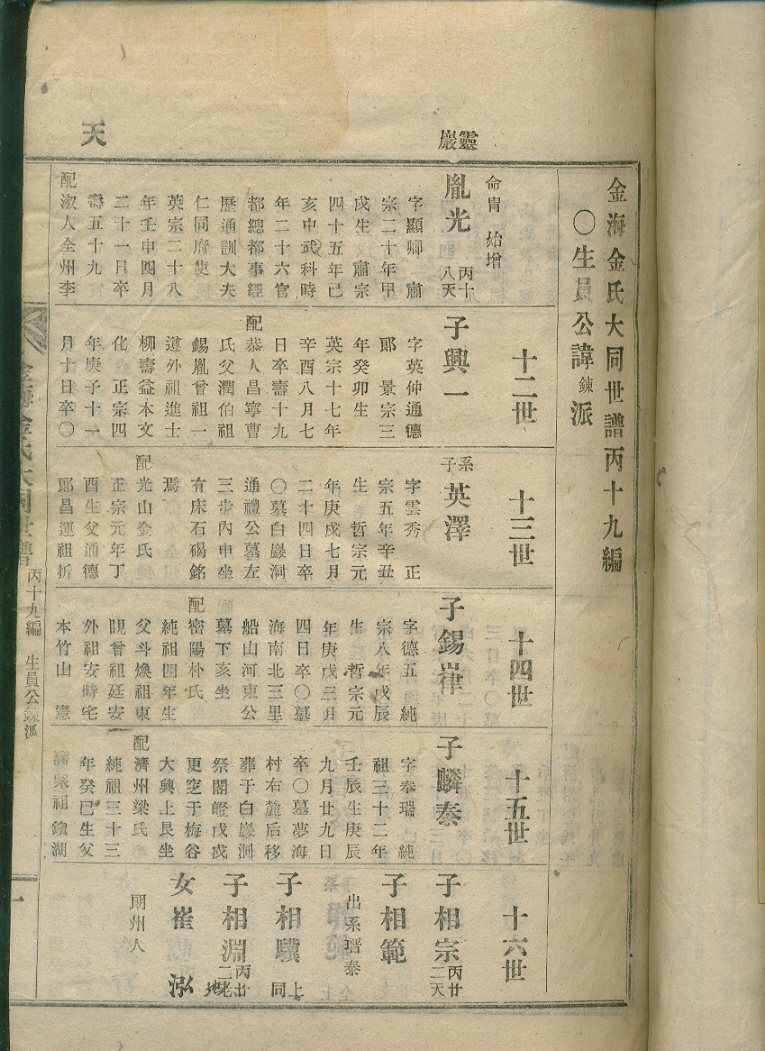 靈巖
天
金海金氏大同世譜丙十九編
〇生員公諱鍊派
命冑 始增
胤光 丙十八天
字顯卿 肅
宗二十年甲
戌生 肅宗
四十五年己
亥中武科時
年二十六官
都總都事經
歷通訓大夫
仁同府使
英宗二十八
年壬申閏月
二十一日卒
壽五十九
配淑人全州李
十二世
子興一
字英仲通德
郞 景宗三
年癸卯生
英宗十七年
辛酉八月七
日卒壽十九
配恭人昌寧曹
氏父潤伯祖
錫胤曾祖一
遵外祖進士
柳壽益本文
化 正宗四
年庚子十一
月十日卒〇
十三世
系子英澤
字雲秀 正
宗五年辛丑
生 哲宗元
年庚戌七月
二十四日卒
〇墓白巖洞
通禮公墓左
三步丙申坐
有床石碣銘
焉
配光山金氏
正宗元年丁
酉生父通德
郞昌運祖折
十四世
子錫嵂
字德五 純
宗八年戊辰
生 哲宗元
年庚戌三月
四日卒〇墓
海南北三里
船山河東公
墓下亥坐
配密陽朴氏
純祖四年生
父斗煥祖東
晛曾祖廷安
外祖安時宅
本竹山 憲
十五世
子麟泰
字奉瑞 純
祖三十二年
壬辰生庚辰
九月廿九日
卒〇墓夢海
村右麓后移
葬于白巖洞
祭閣嶝戊戌
更窆于梅谷
大興上艮坐
配濟州梁氏
純祖三十三
年癸巳生父
祖鎭湖
十六世
子相宗 丙廿二天
子相範
出系瑨泰
子相驥 上同
子相淵 丙廿二老地
女崔泓
朗州人
金海金氏大同世譜 丙十九編 生員公鍊派
一